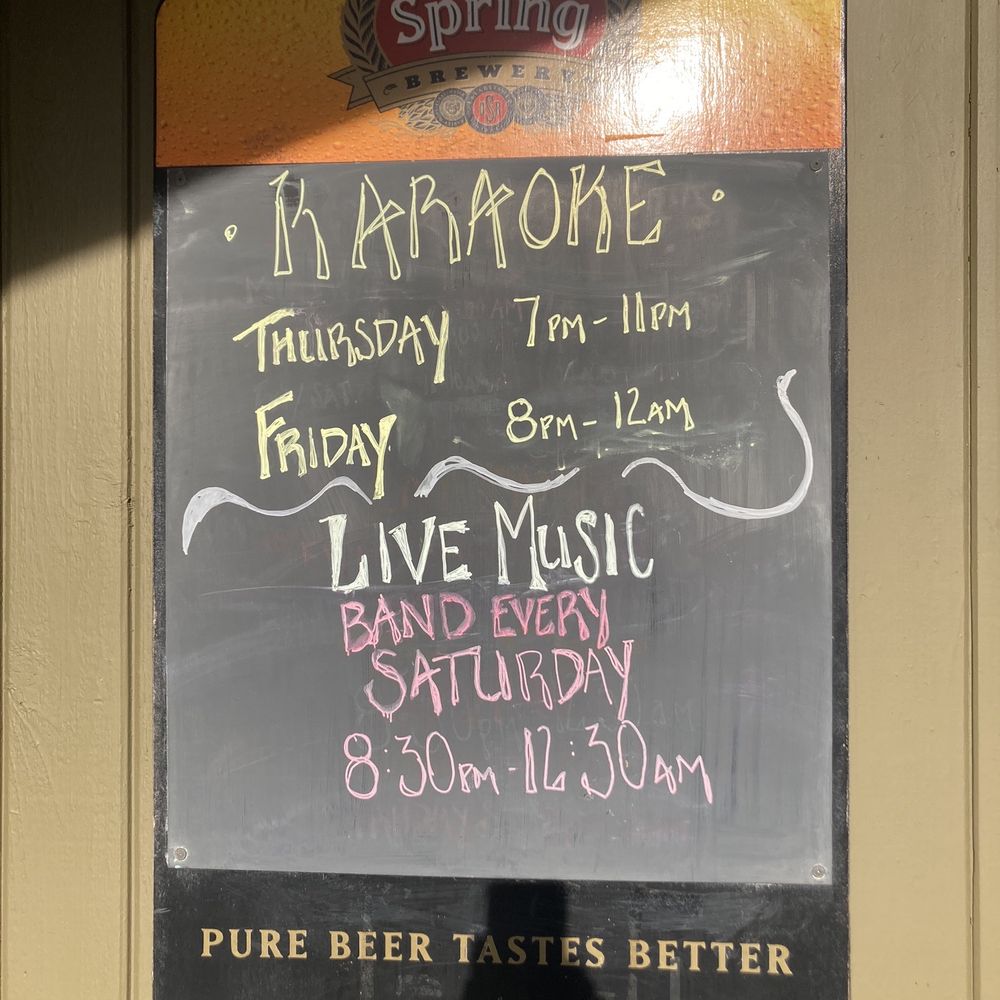 Spring
BREWERY
· KARAOKE ·
THURSDAY 7PM - 11PM
FRIDAY 8PM - 12AM
LIVE MUSIC
BAND EVERY
SATURDAY
8:30PM - 12:30AM
PURE BEER TASTES BETTER